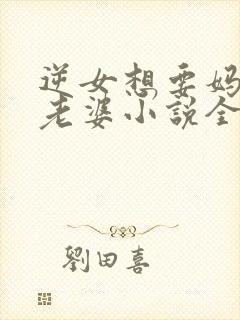 逆女想要妈
老婆小説全
劉田喜